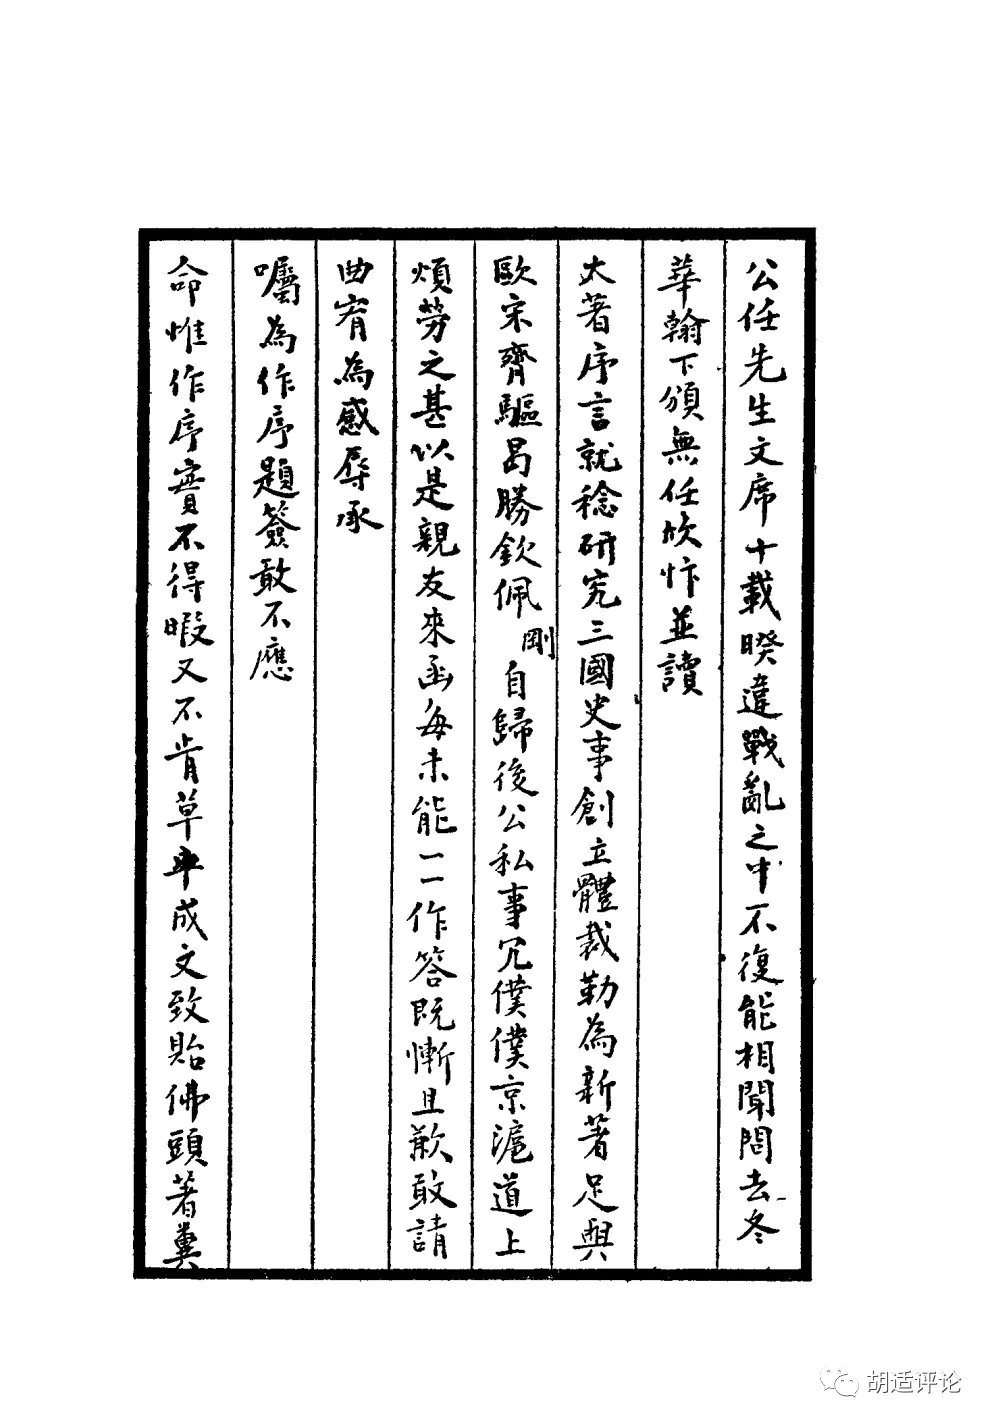 公任先生文席十載暌違戰亂之中不復能相聞問去冬
華翰下頒無任欣忭並讀
大著序言就稔研究三國史事創立體裁勒為新著足與
歐宋齊驅曷勝欽佩剛自歸後公私事冗僕僕京滬道上
煩勞之甚以是親友來函每未能一一作答既慚且歉敢請
曲宥為感辱承
囑為作序題簽敢不應
命惟作序實不得暇又不肯草率成文致貽佛頭著糞
胡适评论